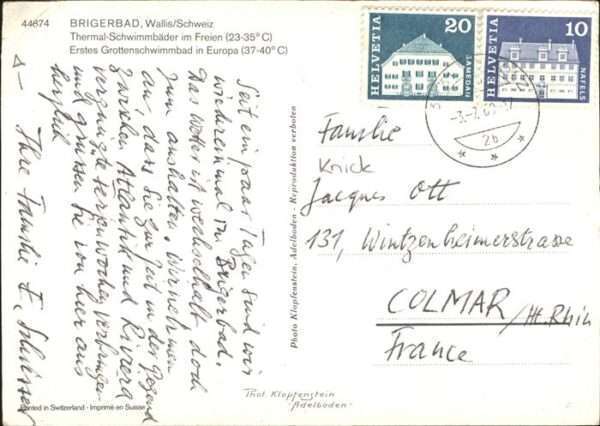 44674 BRIGERBAD, Wallis/Schweiz
Thermal-Schwimmbäder im Freien (23-35° C)
Erstes Grottenschwimmbad in Europa (37-40° C)
Seit ein paar Tagen sind wir
wiedereinmal in Brigerbad.
Das Wetter ist wechselhaft doch
zum aushalten. Wir nehmen
an, dass Sie zur Zeit in der Gegend
zwischen Atlantik und Riviera
vergnügte Ferienwochen verbringen
und grüssen Sie von hier aus
herzlich
Ihre Familie E.
Printed in Switzerland - Imprimé en Suisse
Photo Klopfenstein, Adelboden - Reproduktion verboten
HELVETIA
20
SAMEDAN
HELVETIA
10
NÄFELS
2b
Familie
Knick
Jacques Ott
131, Wintzenheimerstrasse
COLMAR/Ht. Rhin
France
Phot. Klopfenstein
Adelboden-